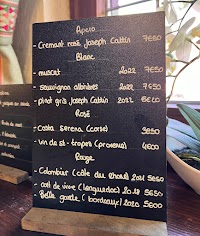 Apéro
- Crémant rosé Joseph Cattin 7€50
Blanc
- muscat 2022 7€50
- sauvignon albières 2022 7€50
- pinot gris Joseph Cattin 2022 6€00
Rosé
- Costa Serena (corse) 3€50
- Vin de st-tropez (provence) 4€00
Rouge
- Colombier (côte du rhone) 2021 5€50
- col de vivre (languedoc) 5€50
Belle garde (bordeaux) 2020 5€00